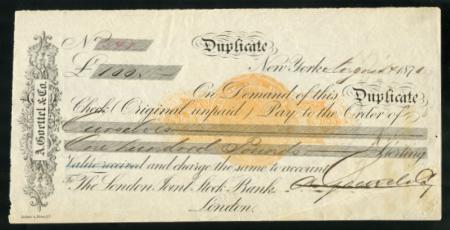 A. Goettel & Co.
No 241
Duplicate
£ 100.
New York August 1870
On Demand of this Duplicate
Check (Original unpaid) Pay to the Order of
Ourselves
One hundred Pounds Sterling
Value received and charge the same to account
To The London Joint Stock Bank
London.